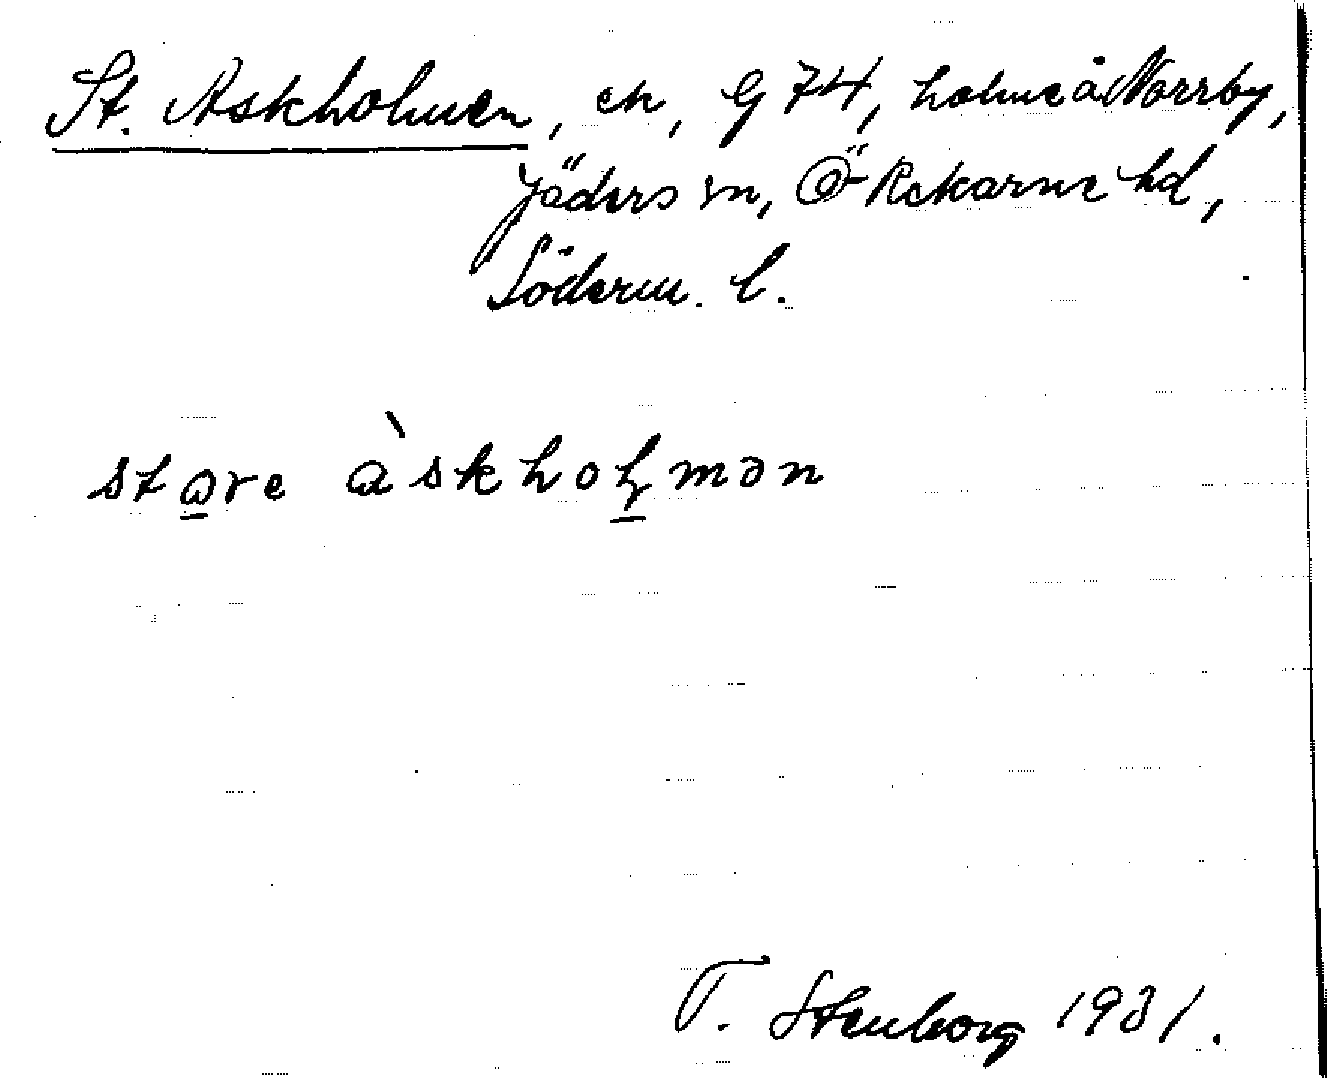 St. Askholmen, en, G 74, holme å Norrby,
Jäders sn, Ö-Rekarne hd,
Söderm. l.
stωre àskhoɫmən
T. Stenborg 1931.